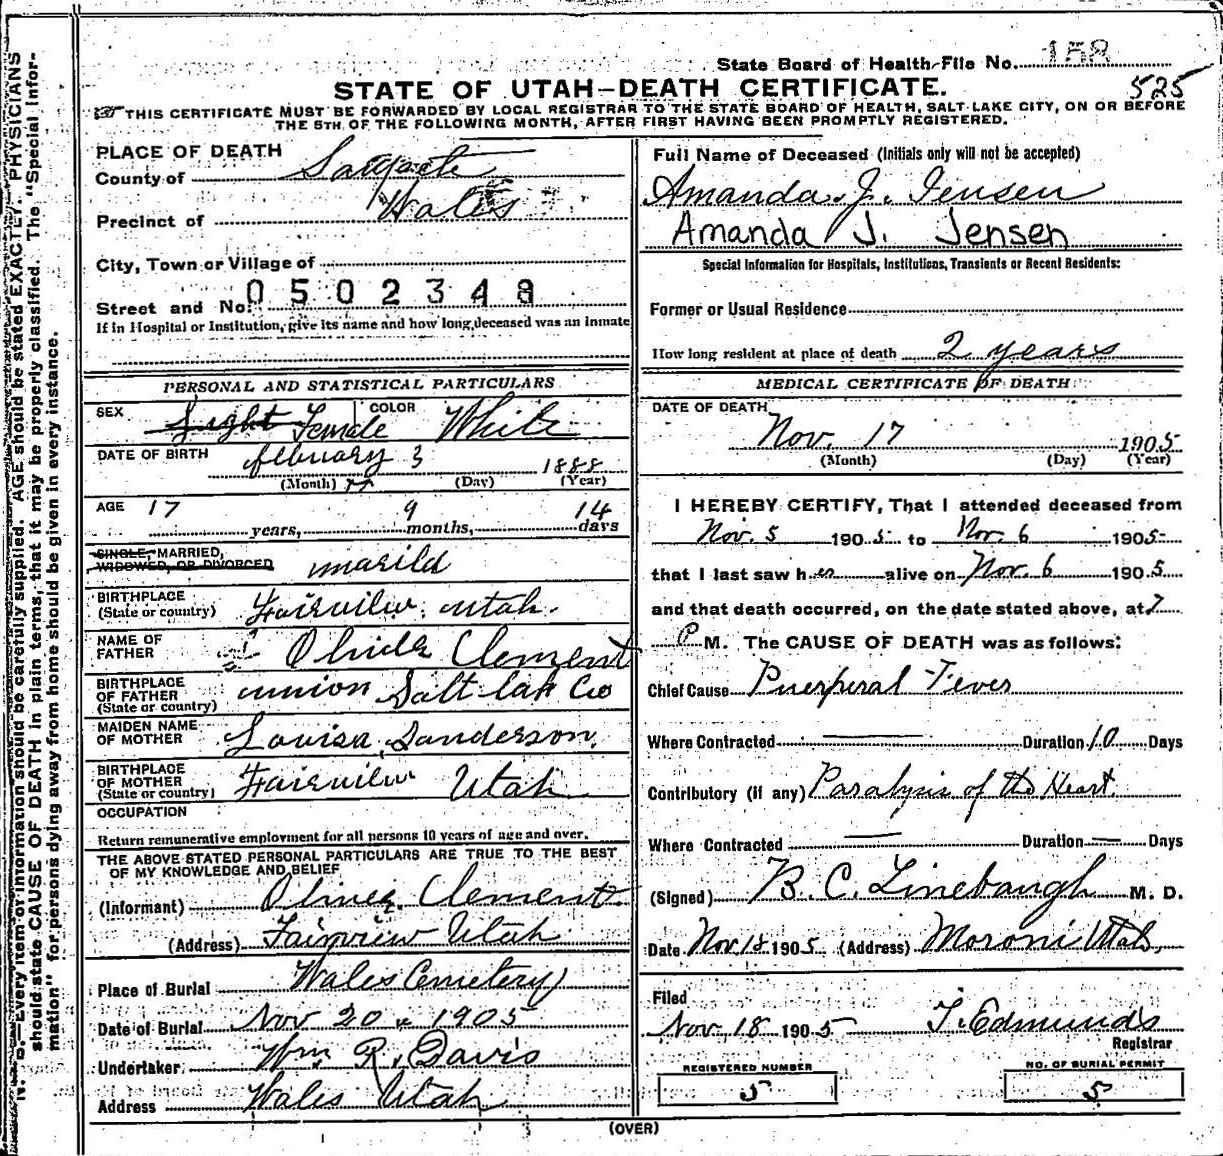 State Board of Health-File No. 158
STATE OF UTAH-DEATH CERTIFICATE. 525
THIS CERTIFICATE MUST BE FORWARDED BY LOCAL REGISTRAR TO THE STATE BOARD OF HEALTH, SALT LAKE CITY, ON OR BEFORE
THE 5TH OF THE FOLLOWING MONTH, AFTER FIRST HAVING BEEN PROMPTLY REGISTERED.
PLACE OF DEATH
County of Sanpete
Precinct of Wales
City, Town or Village of
Street and No. 0502348
If in Hospital or Institution, give its name and how long deceased was an inmate
PERSONAL AND STATISTICAL PARTICULARS
SEX Female COLOR White
DATE OF BIRTH february 3 1888
(Month) (Day) (Year)
AGE 17 years, 9 months, 14 days
SINGLE, MARRIED,
WIDOWED, OR DIVORCED marild
BIRTHPLACE
(State or country) Fairview, Utah.
NAME OF
FATHER Clement
BIRTHPLACE
OF FATHER
(State or country) union Salt lak Co
MAIDEN NAME
OF MOTHER Louisa Sanderson.
BIRTHPLACE
OF MOTHER
(State or country) Fairview Utah
OCCUPATION
Return remunerative employment for all persons 10 years of age and over.
THE ABOVE STATED PERSONAL PARTICULARS ARE TRUE TO THE BEST
OF MY KNOWLEDGE AND BELIEF
(Informant) Oliver Clement.
(Address) Fairview Utah
Place of Burial Wales Cemetery
Date of Burial Nov 20 1905
Undertaker Wm. R. Davis
Address Wales Utah
Full Name of Deceased (Initials only will not be accepted)
Amanda J. Jensen
Amanda J. Jensen
Special Information for Hospitals, Institutions, Transients or Recent Residents:
Former or Usual Residence
How long resident at place of death 2 years
MEDICAL CERTIFICATE OF DEATH
DATE OF DEATH
Nov. 17 1905
(Month) (Day) (Year)
I HEREBY CERTIFY, That I attended deceased from
Nov. 5 1905 to Nov. 6 1905
that I last saw her alive on Nov. 6 1905
and that death occurred, on the date stated above, at 7
P M. The CAUSE OF DEATH was as follows:
Chief Cause Puerperal Fever
Where Contracted Duration 10 Days
Contributory (if any) Paralysis of the Heart.
Where Contracted Duration Days
(Signed) B. C. Linebaugh M. D.
Date Nov. 18 1905 (Address) Moroni Utah,
Filed
Nov. 18 1905 T. Edmunds
Registrar
REGISTERED NUMBER
5
NO. OF BURIAL PERMIT
5
(OVER)
N. B.—Every item of information should be carefully supplied. AGE should be stated EXACTLY. PHYSICIANS
should state CAUSE OF DEATH in plain terms, that it may be properly classified. The "Special Infor-
mation" for persons dying away from home should be given in every instance.